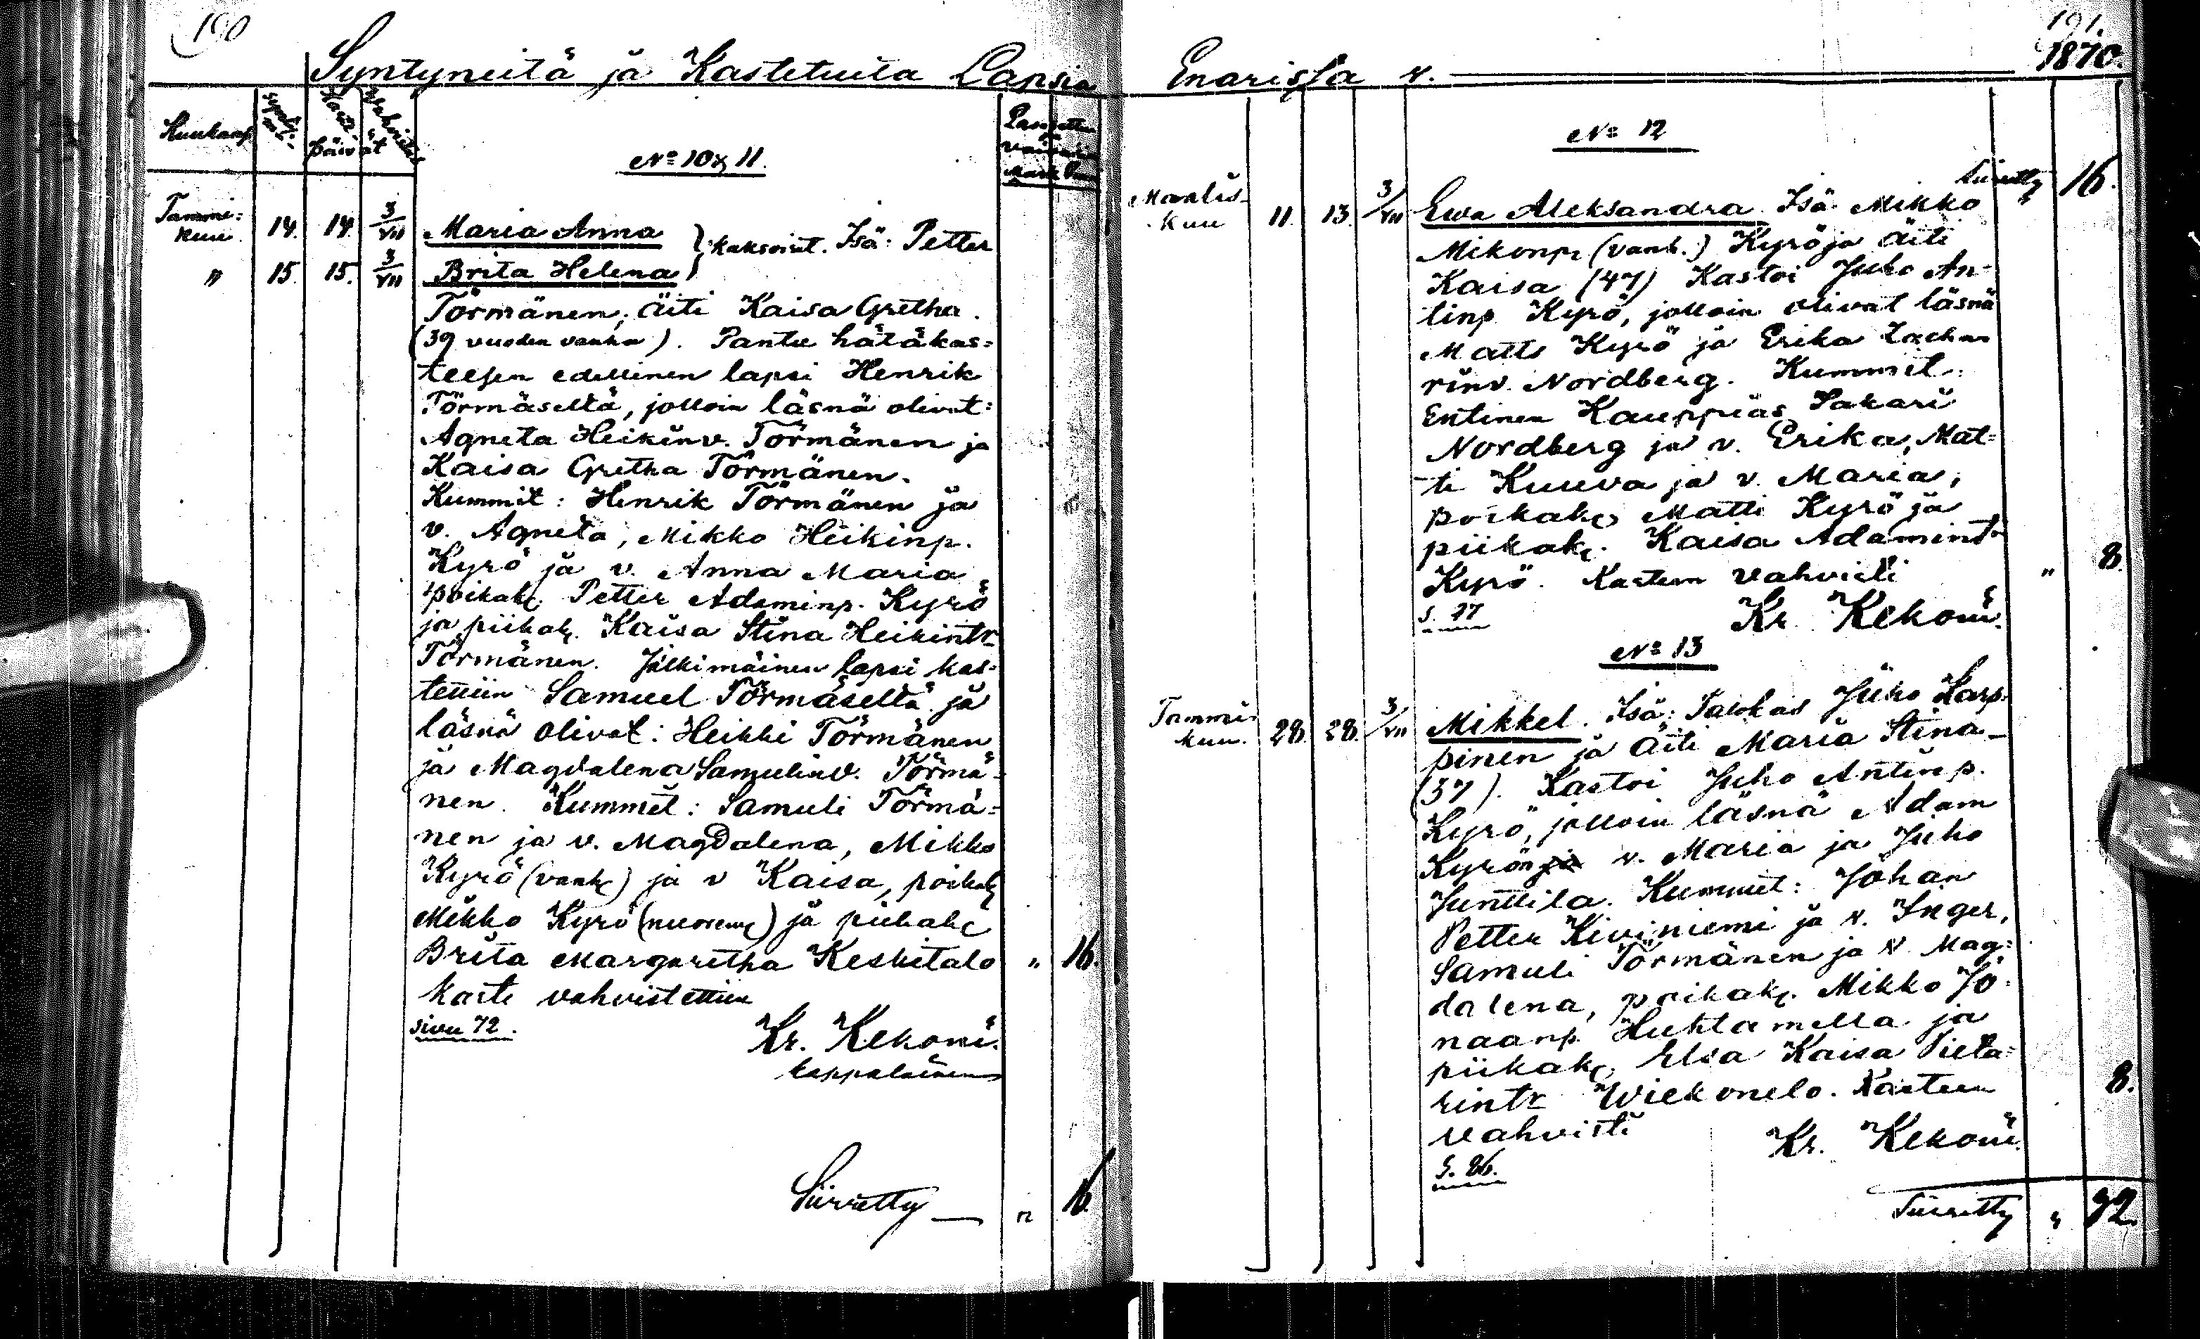 190
Syntyneitä ja Kastetuita Lapsia
Kuukausi
päivät
No 10 & 11.
Tammi=
kuu. 14. 14. 3/VII Maria Anna
" 15. 15. 3/VII Brita Helena } kaksoiset. Isä: Petter
Törmänen, äiti Kaisa Gretha.
(39 vuoden vanha). Pantu hätäkas=
teesen edellinen lapsi Henrik
Törmäseltä, jolloin läsnä olivat:
Agneta Heikinv. Törmänen ja
Kaisa Gretha Törmänen.
Kummit: Henrik Törmänen ja
v. Agneta, Mikko Heikinp.
Kyrö ja v. Anna Maria
poikak. Petter Adaminp. Kyrö
ja piikak. Kaisa Stina Heikintr
Törmänen. Jälkimäinen lapsi kas=
tettiin Samuel Törmäseltä ja
läsnä olivat: Heikki Törmänen
ja Magdalena Samulinv. Törmä=
nen. Kummit: Samuli Törmä=
nen ja v. Magdalena, Mikko
Kyrö (vanh) ja v Kaisa, poikak
Mikko Kyrö (nuoremp) ja piikak
Brita Margaretha Keskitalo " 16.
kaste vahvistettiin
sivu 72.
Kr. Kekoni.
kappalainen
Siirretty — " 16.
191.
Enarissa v. 1870.
No 12
Siirretty " 16.
Maalis-
kuu 11. 13. 3/VII Ewa Aleksandra Isä Mikko
Mikonp. (vanh.) Kyrö ja äiti
Kaisa (47) Kastoi Juho An-
tinp Kyrö, jolloin olivat läsnä
Matts Kyrö ja Erika Zacha
rinv. Nordberg. Kummit:
Entinen Kauppias Sakari
Nordberg ja v. Erika, Mat=
ti Kuuva ja v. Maria,
poikak, Matti Kyrö ja
piikak. Kaisa Adamintr
Kyrö. Kasteen vahvisti " 8.
S. 77
Kr. Kekoni.
No 13
Tammi-
kuu. 28. 28. 3/VII Mikkel. Isä: Talokas Juho Karp=
pinen ja äiti Maria Stina
(37). Kastoi Juho Antinp.
Kyrö, jolloin läsnä Adam
Kyrön v. Maria ja Juho
Junttila. Kummit: Johan
Petter Kiviniemi ja v. Inger,
Samuli Törmänen ja v Mag=
dalena, poikak. Mikko Jo=
naanp. Huhtamella ja
piikak, Elsa Kaisa Pieta=
rintr Wiekonelo. Kasteen 8.
vahvisti
Kr. Kekoni.
S. 86.
Siirretty " 32.